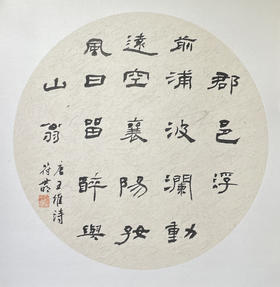 郡邑浮
前浦波瀾動
遠空襄陽好
風日留醉與
山翁
唐王維詩